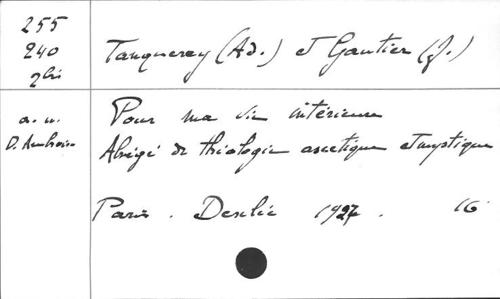 255
240
2bis
Tanquerey (Ad.) et Gautier (J.)
a. n.
D. Ambroise
Pour ma vie intérieure
Abrégé de théologie ascétique et mystique
Paris. Desclée 1927. 16